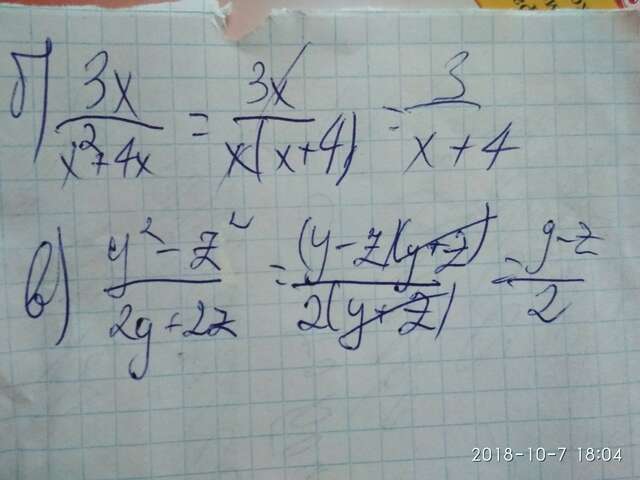 б) 3x / x²+4x = 3x / x(x+4) = 3 / x+4
в) y²-z² / 2y+2z = (y-z)(y+z) / 2(y+z) = y-z / 2
2018-10-7 18:04